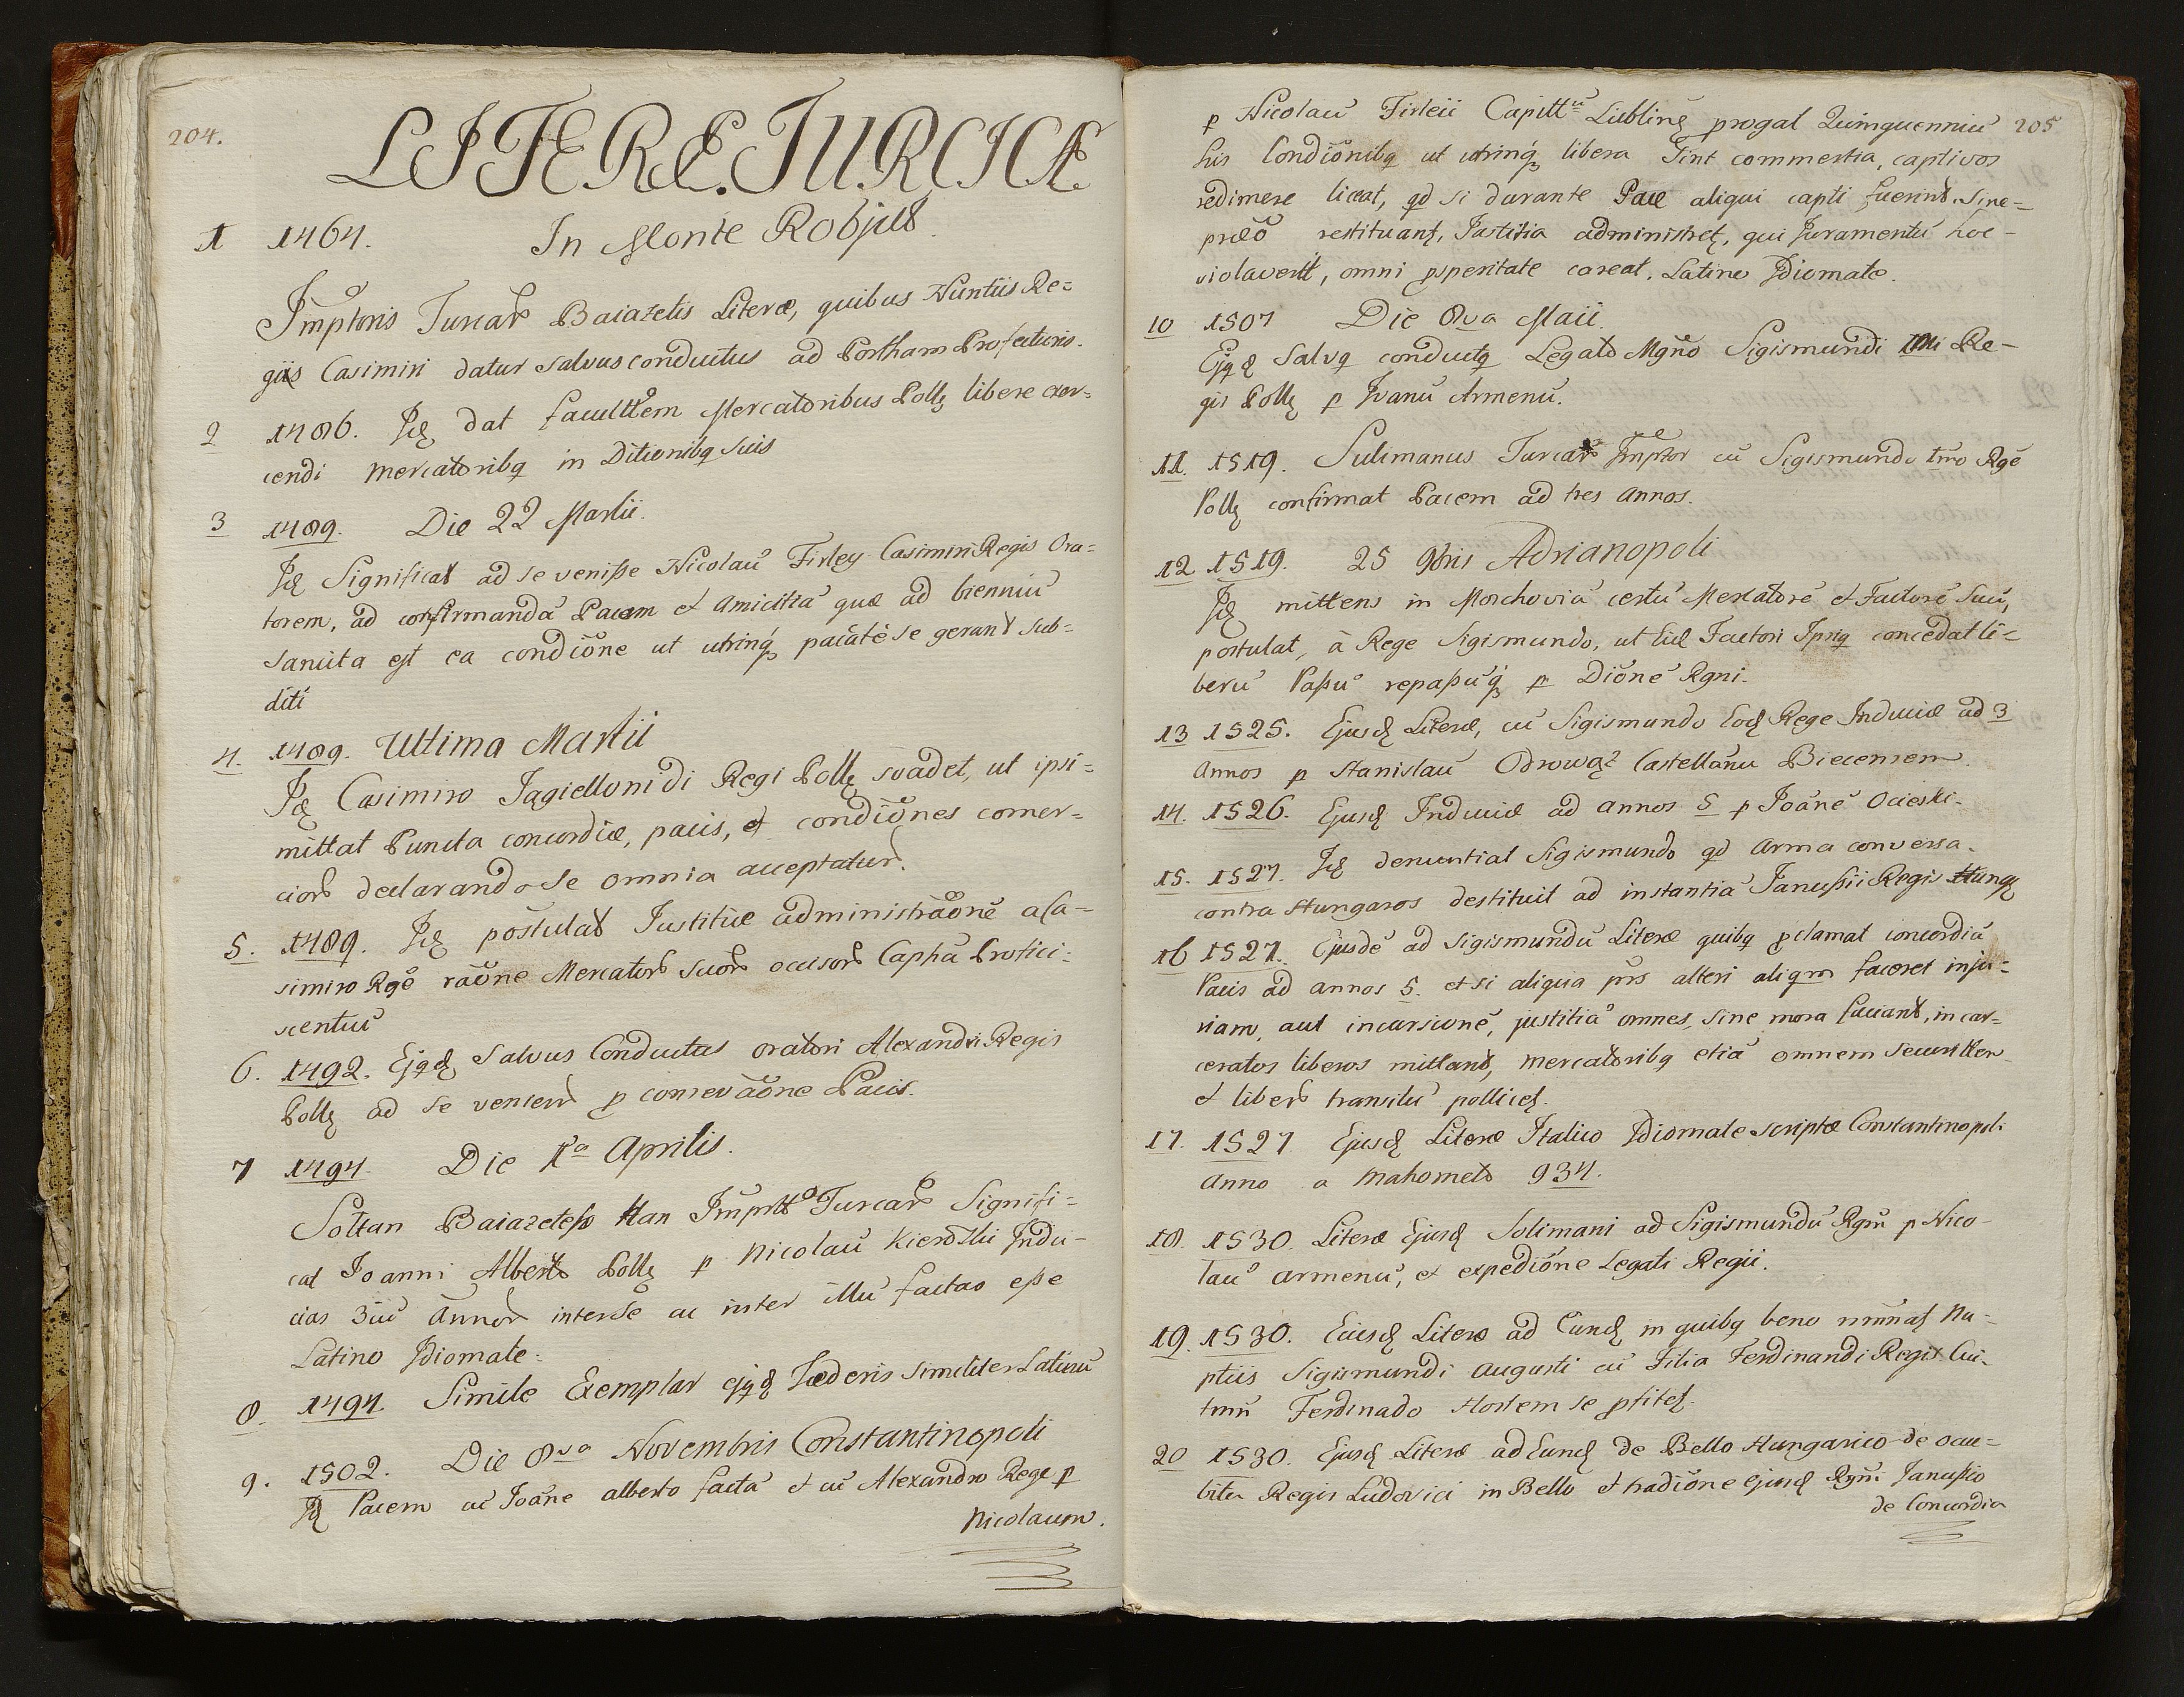 204.
LITERÆ TURCICÆ
1 1464. In Monte Robjul
Imp̃toris Turcar̃ Baiazetis Literæ, quibus Nuntiis Re=
giis Casimiri datur salvus conductus ad Portham Profecturis.
2 1486. Id̃ dat facultt̃em Mercatoribus Pollꝫ libere exer=
cendi mercatoribꝫ in Ditionibꝫ suis
3 1489. Die 22 Martii.
Id̃ Significat ad se veniße Nicolaũ Firley Casimiri Regis Ora=
torem, ad confirmandã Pacem et Amicitiã quæ ad bienniũ
sancita est ea condiõne ut utrinq́ꝫ pacãtè se gerant sub=
diti
4. 1489. Ultima Martii
Id̃ Casimiro Jagiellonidi Regi Pollꝫ svadet, ut ipsi=
mittat Puncta concordiæ, pacis, et condiõnes comer=
cior̃ declarando se omnia acceptatur̃.
5. 1489. Id̃ postulat Justitiæ administrãonẽ a Ca=
simiro Rgẽ rãone Mercator̃ suor̃ occisor̃ Caphã Profici=
scentiũ
6. 1492. Ejꝫd̃ Salvus Conductus oratori Alexandri Regis
Pollꝫ ad se venien̄ p conservãone Pacis.
7 1494. Die 1a Aprilis.
Soltan Baiazeteß Han Imprtt Turcar̃ Signifi=
cat Joanni Alberto Pollꝫ p Nicolaũ Kierdzki Indu=
cias 3ũ Annor̃ inter se ac inter illũ factas eße
Latino Idiomate.
8. 1494. Simile Exemplar ejꝫd̃ Fœderis similiter Latinũ
9. 1502. Die 8va Novembris Constantinopoli
Id̃ Pacem cũ Joãne alberto factã et cũ Alexandro Rege p
Nicolaum.
205
p Nicolaũ Firleii Capitt̃ũ Lublinꝫ progat Quinquenniũ
his Condiõnibꝫ ut utrinq́ꝫ libera sint commertia, captivos
redimere liceat, qd si durante Pace aliqui capti fuerint, sine=
præõ restituanꝫ, Justitia administreꝫ, qui Juramentũ hoc=
violaverit, omni psperitate careat. Latino Idiomate.
10 1507 Die 8va Maii.
Ejꝫd̃ Salvꝫ conductꝫ Legato Mgño Sigismundi Imi Re=
gis Pollꝫ p Ivanũ Armenũ.
11. 1519. Sulimanus Turcar̃ Imp̃tor cũ Sigismundo Imo Rgẽ
Pollꝫ confirmat Pacem ad tres annos.
12 1519. 25 9bris Adrianopoli
Id̃ mittens in Moschoviã certũ Mercatorẽ et Factorẽ suũ,
postulat, à Rege Sigismundo, ut huic Factori Ipsiꝫ concedat li=
berũ Paßũ repaßũq́ꝫ p Diõnẽ Rgni.
13 1525. Ejusd̃ Literæ, cũ Sigismundo Eod̃ Rege Induciæ ad 3
Annos p Stanislaũ Odrowąż Castellanũ Biecensem.
14. 1526. Ejusd̃ Induciæ ad annos 5 p Joãnẽ Ocieski.
15. 1527. Id̃ denuntiat Sigismundo qd Arma conversa
contra Hungaros destituit ad instantiã Janußii Regis Hungꝫ
16 1527. Ejusdẽ ad Sigismundũ Literæ quibꝫ pclamat concordiã
Pacis ad annos 5. et si aliqua prs alteri aliqm faceret inju=
riam, aut incursionẽ, justitiã omnes, sine mora faciant, incar=
ceratos liberos mittant, mercatoribꝫ etiã omnem securitten
et liber̃ transitũ polliceꝫ.
17. 1527 Ejusd̃ Literæ Italico Idiomate scriptæ Constantinopoli
Anno a Mahometo 934.
18. 1530. Literæ Ejusd̃ Solimani ad Sigismundũ Rgm̃ p Nico-
laũ Armenũ, et expediõne Legati Regii.
19. 1530. Eiusd̃ Literæ ad Eund̃ in quibꝫ bene nunñaꝫ Nu=
ptiis Sigismundi Augusti cũ Filia Ferdinandi Regis Cui
tmñ Ferdinado Hostem se pfiteꝫ.
20 1530. Ejusd̃ Literæ ad Eund̃ de Bello Hungarico de ocu=
bitu Regis Ludovici in Bello et tradiõne ejusd̃ Rgni Janußio
de Concordia